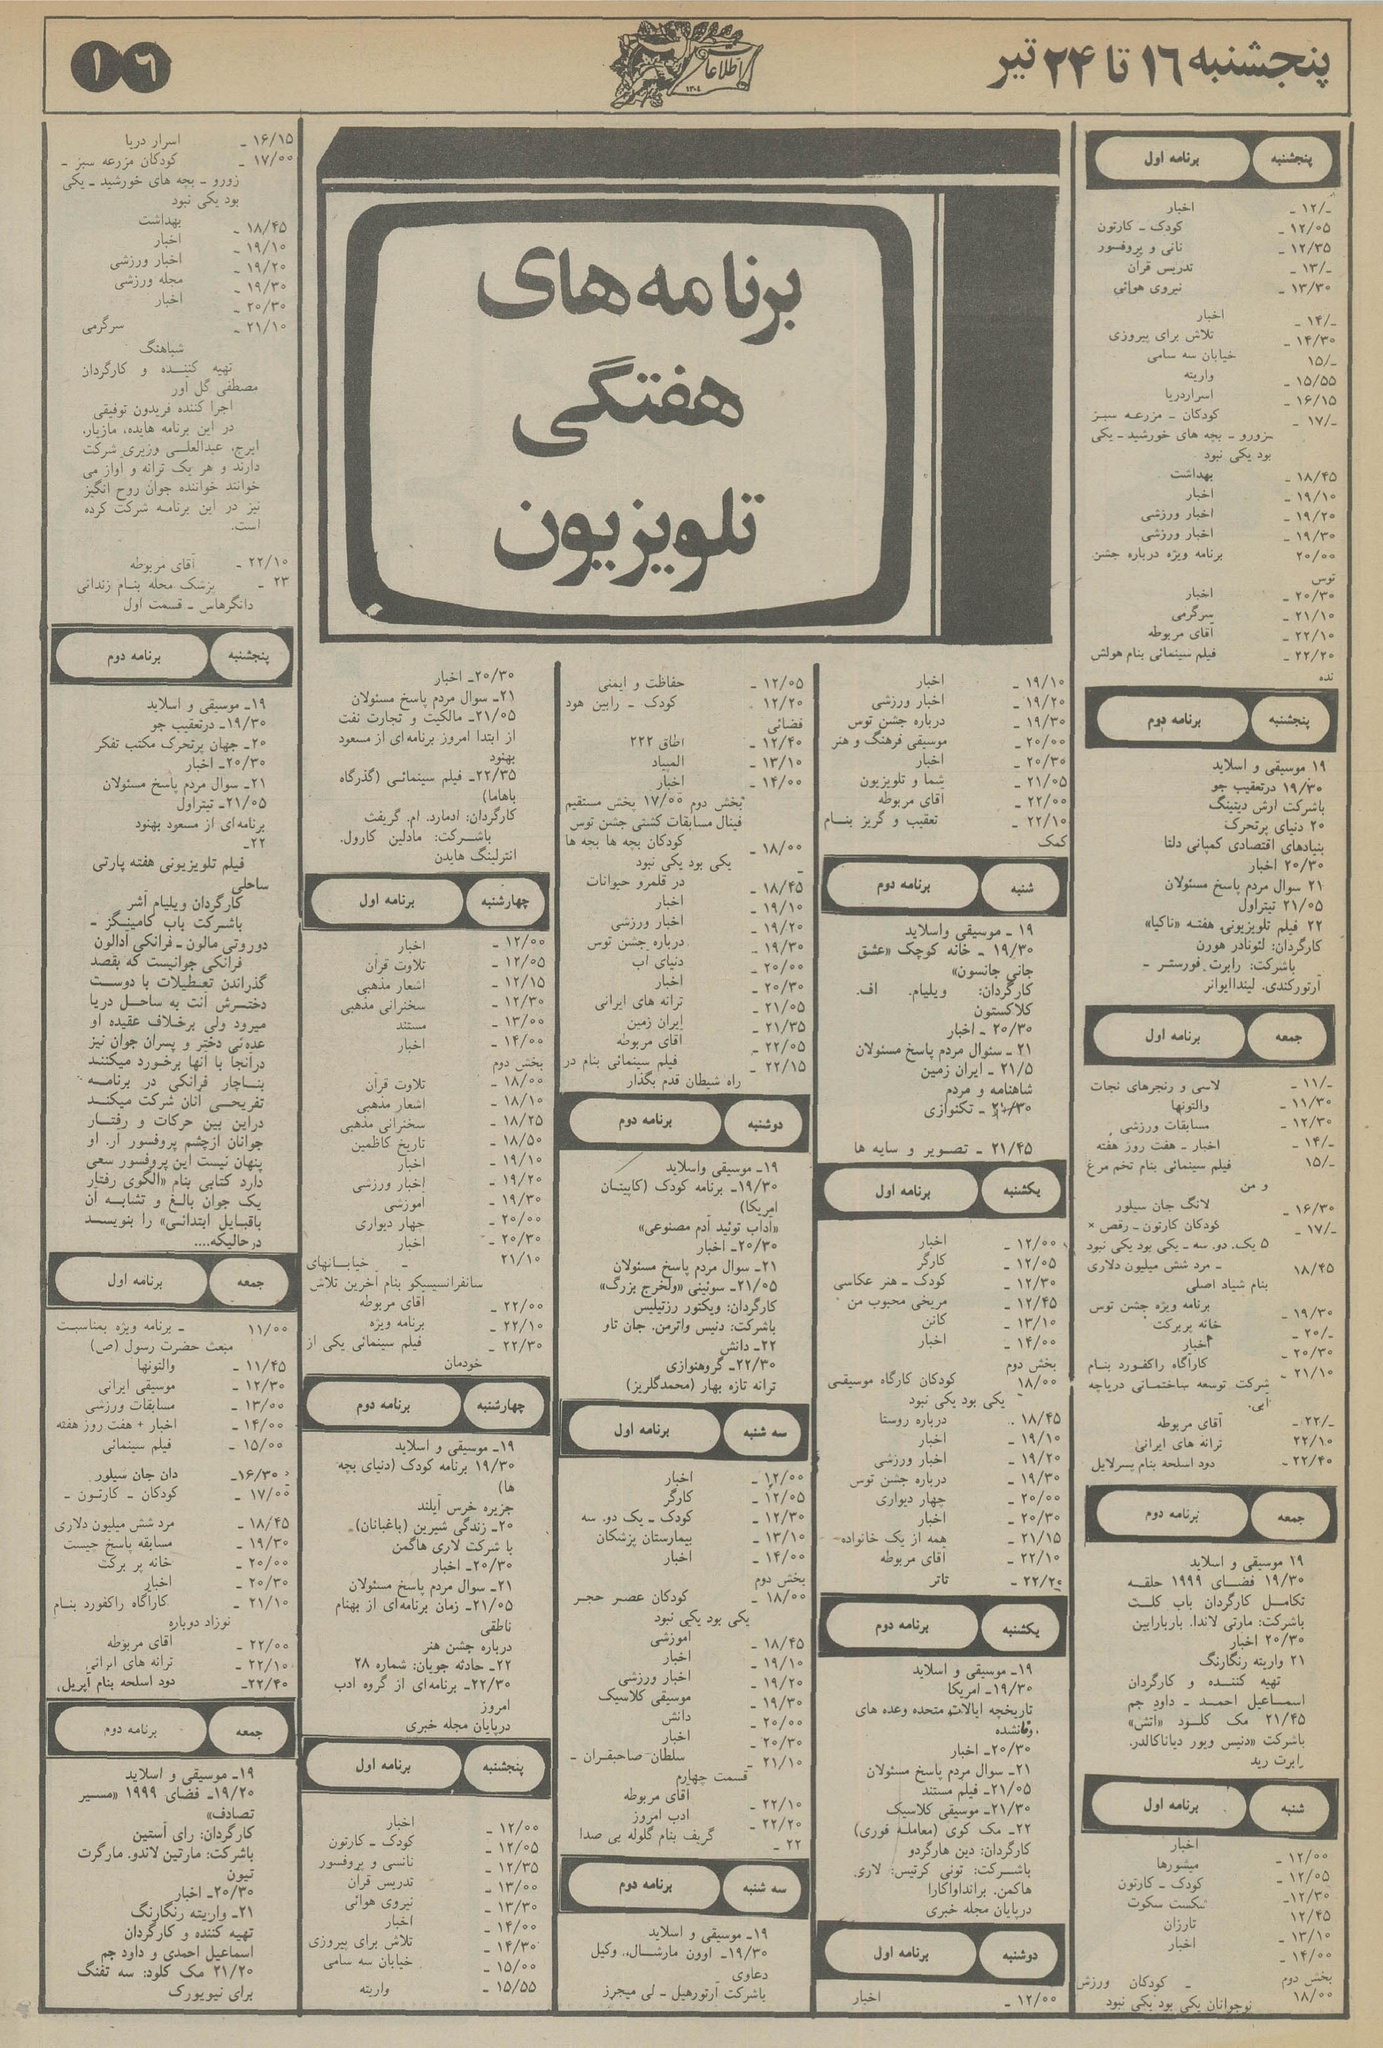 پنجشنبه ۱۶ تا ۲۴ تیر
اطلاعات
۱۳۰۴
۱۶
برنامه‌های
هفتگی
تلویزیون
پنجشنبه برنامه اول
۱۲/- - اخبار
۱۲/۰۵ - کودک - کارتون
۱۲/۳۵ - نانی و پروفسور
۱۳/- - تدریس قرآن
۱۳/۳۰ - نیروی هوائی
۱۴/- - اخبار
۱۴/۳۰ - تلاش برای پیروزی
۱۵/- خیابان سه سامی
۱۵/۵۵ - واریته
۱۶/۱۵ - اسراردریا
۱۷/- - کودکان - مزرعه سبز
زورو - بچه های خورشید - یکی
بود یکی نبود
۱۸/۴۵ - بهداشت
۱۹/۱۰ - اخبار
۱۹/۲۰ - اخبار ورزشی
۱۹/۳۰ - اخبار ورزشی
۲۰/۰۰ برنامه ویژه درباره جشن
توس
۲۰/۳۰ - اخبار
۲۱/۱۰ - سرگرمی
۲۲/۱۰ - آقای مربوطه
۲۲/۲۰ - فیلم سینمائی بنام هولش
نده
پنجشنبه برنامه دوم
۱۹ موسیقی و اسلاید
۱۹/۳۰ درتعقیب جو
باشرکت ارش دیتینگ
۲۰ دنیای پرتحرک
بنیادهای اقتصادی کمپانی دلتا
۲۰/۳۰ اخبار
۲۱ سوال مردم پاسخ مسئولان
۲۱/۰۵ تیتراول
۲۲ فیلم تلویزیونی هفته «ناکیا»
کارگردان: لئونادر هورن
باشرکت: رابرت فورستر -
آرتورکندی. لینداایوانر
جمعه برنامه اول
۱۱/- - لاسی و رنجرهای نجات
۱۱/۳۰ - والتونها
۱۲/۳۰ - مسابقات ورزشی
۱۴/- - اخبار - هفت روز هفته
۱۵/- فیلم سینمائی بنام تخم مرغ
و من
۱۶/۳۰ - لانگ جان سیلور
۱۷/- - کودکان کارتون - رقص ×
۵ یک. دو. سه - یکی بود یکی نبود
۱۸/۴۵ - مرد شش میلیون دلاری
بنام شیاد اصلی
۱۹/۳۰ - برنامه ویژه جشن توس
۲۰/- - خانه پربرکت
۲۰/۳۰ - اخبار
۲۱/۱۰ - کارآگاه راکفورد بنام
شرکت توسعه ساختمانی دریاچه
آبی.
۲۲/- - آقای مربوطه
۲۲/۱۰ ترانه های ایرانی
۲۲/۴۰ - دود اسلحه بنام پسرلایل
جمعه برنامه دوم
۱۹ موسیقی و اسلاید
۱۹/۳۰ فضای ۱۹۹۹ حلقه
تکامل کارگردان باب کلت
باشرکت: مارتی لاندا. باربارابین
۲۰/۳۰ اخبار
۲۱ واریته رنگارنگ
تهیه کننده و کارگردان
اسماعیل احمد - داود جم
۲۱/۴۵ مک کلود «آتش»
باشرکت «دنیس ویور دیاناکالدر.
رابرت رید
شنبه برنامه اول
۱۲/۰۰ - اخبار
۱۲/۰۵ - میشورها
۱۲/۳۰ - کودک - کارتون
۱۲/۴۵ شکست سکوت
۱۳/۱۰ - تارزان
۱۴/۰۰ - اخبار
بخش دوم
۱۸/۰۰ - کودکان ورزش
نوجوانان یکی بود یکی نبود
۱۹/۱۰ - اخبار
۱۹/۲۰ - اخبار ورزشی
۱۹/۳۰ - درباره جشن توس
۲۰/۰۰ - موسیقی فرهنگ و هنر
۲۰/۳۰ - اخبار
۲۱/۰۵ - شما و تلویزیون
۲۲/۰۰ - آقای مربوطه
۲۲/۱۰ - تعقیب و گریز بنام
کمک
شنبه برنامه دوم
۱۹ - موسیقی واسلاید
۱۹/۳۰ - خانه کوچک «عشق
جانی جانسون»
کارگردان: ویلیام. اف.
کلاکستون
۲۰/۳۰ - اخبار
۲۱ - سئوال مردم پاسخ مسئولان
۲۱/۵ - ایران زمین
شاهنامه و مردم
۲۱/۳۰ - تکنوازی
۲۱/۴۵ - تصویر و سایه ها
یکشنبه برنامه اول
۱۲/۰۰ - اخبار
۱۲/۰۵ - کارگر
۱۲/۳۰ - کودک - هنر عکاسی
۱۲/۴۵ - مریخی محبوب من
۱۳/۱۰ - کانن
۱۴/۰۰ - اخبار
بخش دوم
۱۸/۰۰ کودکان کارگاه موسیقی
یکی بود یکی نبود
۱۸/۴۵ - درباره روستا
۱۹/۱۰ - اخبار
۱۹/۲۰ - اخبار ورزشی
۱۹/۳۰ - درباره جشن توس
۲۰/۰۰ - چهار دیواری
۲۰/۳۰ - اخبار
۲۱/۱۵ - همه از یک خانواده
۲۲/۱۰ - آقای مربوطه
۲۲/۲۰ - تاتر
یکشنبه برنامه دوم
۱۹- موسیقی و اسلاید
۱۹/۳۰- امریکا
تاریخچه ایالات متحده وعده های
وفانشده
۲۰/۳۰- اخبار
۲۱- سوال مردم پاسخ مسئولان
۲۱/۰۵- فیلم مستند
۲۱/۳۰- موسیقی کلاسیک
۲۲- مک کوی (معامله فوری)
کارگردان: دین هارگردو
باشرکت: تونی کرتیس: لاری.
هاکمن. برانداواکارا
درپایان مجله خبری
دوشنبه برنامه اول
۱۲/۰۰ - اخبار
۱۲/۰۵ - حفاظت و ایمنی
۱۲/۲۰ کودک - رابین هود
فضائی
۱۲/۴۰ - اطاق ۲۲۲
۱۳/۱۰ - المپیاد
۱۴/۰۰ - اخبار
بخش دوم ۱۷/۰۰ پخش مستقیم
فینال مسابقات کشتی جشن توس
۱۸/۰۰ - کودکان بچه ها بچه ها
یکی بود یکی نبود
۱۸/۴۵ - در قلمرو حیوانات
۱۹/۱۰ - اخبار
۱۹/۲۰ - اخبار ورزشی
۱۹/۳۰ - درباره جشن توس
۲۰/۰۰ - دنیای آب
۲۰/۳۰ - اخبار
۲۱/۰۵ - ترانه های ایرانی
۲۱/۳۵ - ایران زمین
۲۲/۰۵ - آقای مربوطه
۲۲/۱۵ - فیلم سینمائی بنام در
راه شیطان قدم بگذار
دوشنبه برنامه دوم
۱۹- موسیقی واسلاید
۱۹/۳۰- برنامه کودک (کاپیتان
امریکا)
«آداب تولید آدم مصنوعی»
۲۰/۳۰- اخبار
۲۱- سوال مردم پاسخ مسئولان
۲۱/۰۵- سوئینی «ولخرج بزرگ»
کارگردان: ویکتور رزتیلیس
باشرکت: دنیس واترمن. جان تاو
۲۲- دانش
۲۲/۳۰- گروهنوازی
ترانه تازه بهار (محمدگلریز)
سه شنبه برنامه اول
۱۲/۰۰ - اخبار
۱۲/۰۵ - کارگر
۱۲/۳۰ - کودک - یک دو. سه
۱۳/۱۰ - بیمارستان پزشکان
۱۴/۰۰ - اخبار
بخش دوم
۱۸/۰۰ - کودکان عصر حجر
یکی بود یکی نبود
۱۸/۴۵ - آموزشی
۱۹/۱۰ - اخبار
۱۹/۲۰ - اخبار ورزشی
۱۹/۳۰ - موسیقی کلاسیک
۲۰/۰۰ - دانش
۲۰/۳۰ - اخبار
۲۱/۱۰ - سلطان صاحبقران -
قسمت چهارم
۲۲/۱۰ - آقای مربوطه
۲۲/۲۰ - ادب امروز
۲۲ - گریف بنام گلوله بی صدا
سه شنبه برنامه دوم
۱۹- موسیقی و اسلاید
۱۹/۳۰- اوون مارشال، وکیل
دعاوی
باشرکت آرتورهیل - لی میجرز
۲۰/۳۰- اخبار
۲۱- سوال مردم پاسخ مسئولان
۲۱/۰۵- مالکیت و تجارت نفت
از ابتدا امروز برنامه‌ای از مسعود
بهنود
۲۲/۳۵- فیلم سینمائی (گذرگاه
باهاما)
کارگردان: ادمارد. ام. گریفت
باشرکت: مادلین کارول.
انترلینگ هایدن
چهارشنبه برنامه اول
۱۲/۰۰ - اخبار
۱۲/۰۵ - تلاوت قرآن
۱۲/۱۵ - اشعار مذهبی
۱۲/۳۰ - سخنرانی مذهبی
۱۳/۰۰ - مستند
۱۴/۰۰ - اخبار
بخش دوم
۱۸/۰۰ - تلاوت قرآن
۱۸/۱۰ - اشعار مذهبی
۱۸/۲۵ - سخنرانی مذهبی
۱۸/۵۰ - تاریخ کاظمین
۱۹/۱۰ - اخبار
۱۹/۲۰ - اخبار ورزشی
۱۹/۳۰ - آموزشی
۲۰/۰۰ - چهار دیواری
۲۰/۳۰ - اخبار
۲۱/۱۰ - خیابانهای
سانفرانسیسیکو بنام آخرین تلاش
۲۲/۰۰ - آقای مربوطه
۲۲/۱۰ - برنامه ویژه
۲۲/۳۰ - فیلم سینمائی یکی از
خودمان
چهارشنبه برنامه دوم
۱۹- موسیقی و اسلاید
۱۹/۳۰ برنامه کودک (دنیای بچه
ها)
جزیره خرس آیلند
۲۰- زندگی شیرین (باغبانان)
با شرکت لاری هاگمن
۲۰/۳۰- اخبار
۲۱- سوال مردم پاسخ مسئولان
۲۱/۰۵- زمان برنامه‌ای از بهنام
ناطقی
درباره جشن هنر
۲۲- حادثه جویان: شماره ۲۸
۲۲/۳۰- برنامه‌ای از گروه ادب
امروز
درپایان مجله خبری
پنجشنبه برنامه اول
۱۲/۰۰ - اخبار
۱۲/۰۵ - کودک - کارتون
۱۲/۳۵ - نانسی و پروفسور
۱۳/۰۰ - تدریس قرآن
۱۳/۳۰ - نیروی هوائی
۱۴/۰۰ - اخبار
۱۴/۳۰ - تلاش برای پیروزی
۱۵/۰۰ - خیابان سه سامی
۱۵/۵۵ - واریته
۱۶/۱۵ - اسرار دریا
۱۷/۰۰ - کودکان مزرعه سبز -
زورو - بچه های خورشید - یکی
بود یکی نبود
۱۸/۴۵ - بهداشت
۱۹/۱۰ - اخبار
۱۹/۲۰ - اخبار ورزشی
۱۹/۳۰ - مجله ورزشی
۲۰/۳۰ - اخبار
۲۱/۱۰ - سرگرمی
شباهنگ
تهیه کننده و کارگردان
مصطفی گل آور
اجرا کننده فریدون توفیقی
در این برنامه هایده، مازیار،
ایرج، عبدالعلی وزیری شرکت
دارند و هر یک ترانه و آواز می
خوانند خواننده جوان روح انگیز
نیز در این برنامه شرکت کرده
است.
۲۲/۱۰ - آقای مربوطه
۲۳ - پزشک محله بنام زندانی
دانگرهاس - قسمت اول
پنجشنبه برنامه دوم
۱۹- موسیقی و اسلاید
۱۹/۳۰- درتعقیب جو
۲۰- جهان پرتحرک مکتب تفکر
۲۰/۳۰- اخبار
۲۱- سوال مردم پاسخ مسئولان
۲۱/۰۵- تیتراول
برنامه‌ای از مسعود بهنود
۲۲-
فیلم تلویزیونی هفته پارتی
ساحلی
کارگردان ویلیام آشر
باشرکت باب کامینگز -
دوروتی مالون - فرانکی آدالون
فرانکی جوانیست که بقصد
گذراندن تعطیلات با دوست
دخترش آنت به ساحل دریا
میرود ولی برخلاف عقیده او
عده‌ئی دختر و پسران جوان نیز
درآنجا با آنها برخورد میکنند
بناچار فرانکی در برنامه
تفریحی آنان شرکت میکند
دراین بین حرکات و رفتار
جوانان ازچشم پروفسور آر. او
پنهان نیست این پروفسور سعی
دارد کتابی بنام «الگوی رفتار
یک جوان بالغ و تشابه آن
باقبایل ابتدائی» را بنویسد
درحالیکه....
جمعه برنامه اول
۱۱/۰۰ - برنامه ویژه بمناسبت
مبعث حضرت رسول (ص)
۱۱/۴۵ - والتونها
۱۲/۳۰ - موسیقی ایرانی
۱۳/۰۰ - مسابقات ورزشی
۱۴/۰۰ - اخبار + هفت روز هفته
۱۵/۰۰ - فیلم سینمائی
۱۶/۳۰- دان جان سیلور
۱۷/۰۰ - کودکان - کارتون -
۱۸/۴۵ - مرد شش میلیون دلاری
۱۹/۳۰ - مسابقه پاسخ چیست
۲۰/۰۰ - خانه پر برکت
۲۰/۳۰ - اخبار
۲۱/۱۰ - کارآگاه راکفورد بنام
نوزاد دوباره
۲۲/۰۰ - آقای مربوطه
۲۲/۱۰ - ترانه های ایرانی
۲۲/۴۰- دود اسلحه بنام آپریل.
جمعه برنامه دوم
۱۹- موسیقی و اسلاید
۱۹/۲۰- فضای ۱۹۹۹ «مسیر
تصادف»
کارگردان: رای آستین
باشرکت: مارتین لاندو. مارگرت
تیون
۲۰/۳۰- اخبار
۲۱- واریته رنگارنگ
تهیه کننده و کارگردان
اسماعیل احمدی و داود جم
۲۱/۲۰ مک کلود: سه تفنگ
برای نیویورک